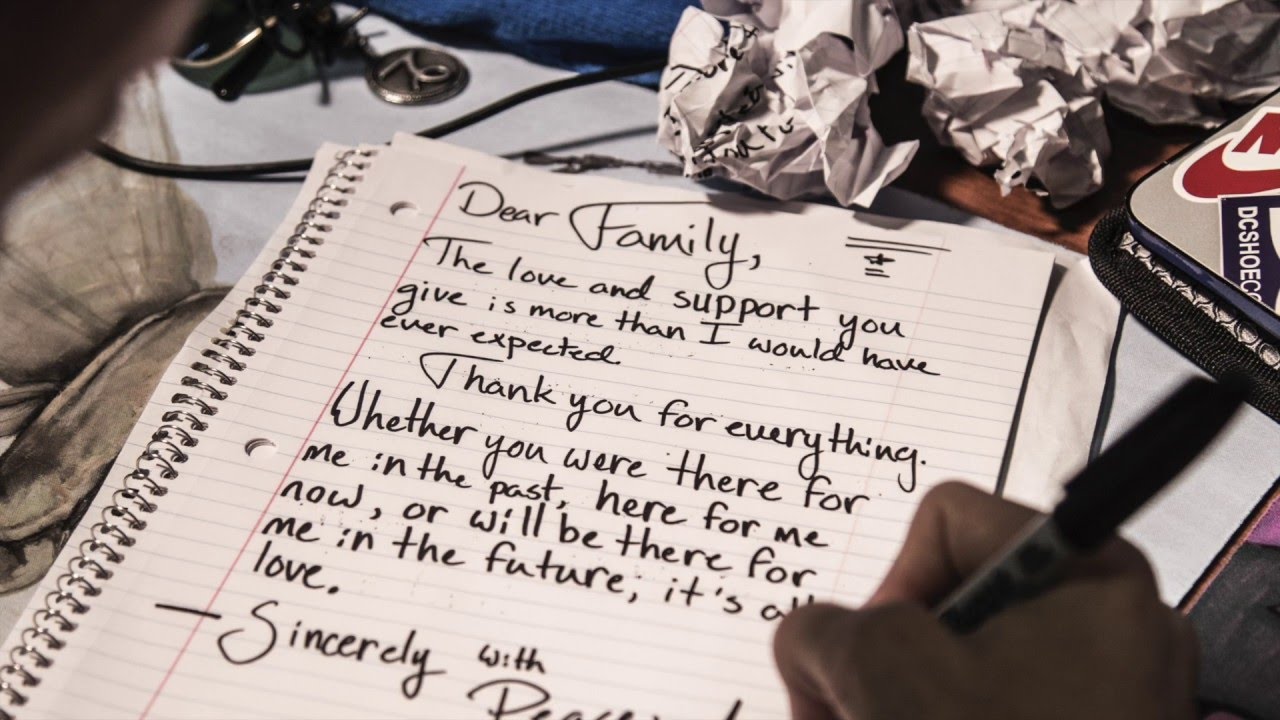 Dear Family,
The love and support you
give is more than I would have
ever expected.
Thank you for everything.
Whether you were there for
me in the past, here for me
now, or will be there for
me in the future, it's all
love.
— Sincerely with
DCSHOECO